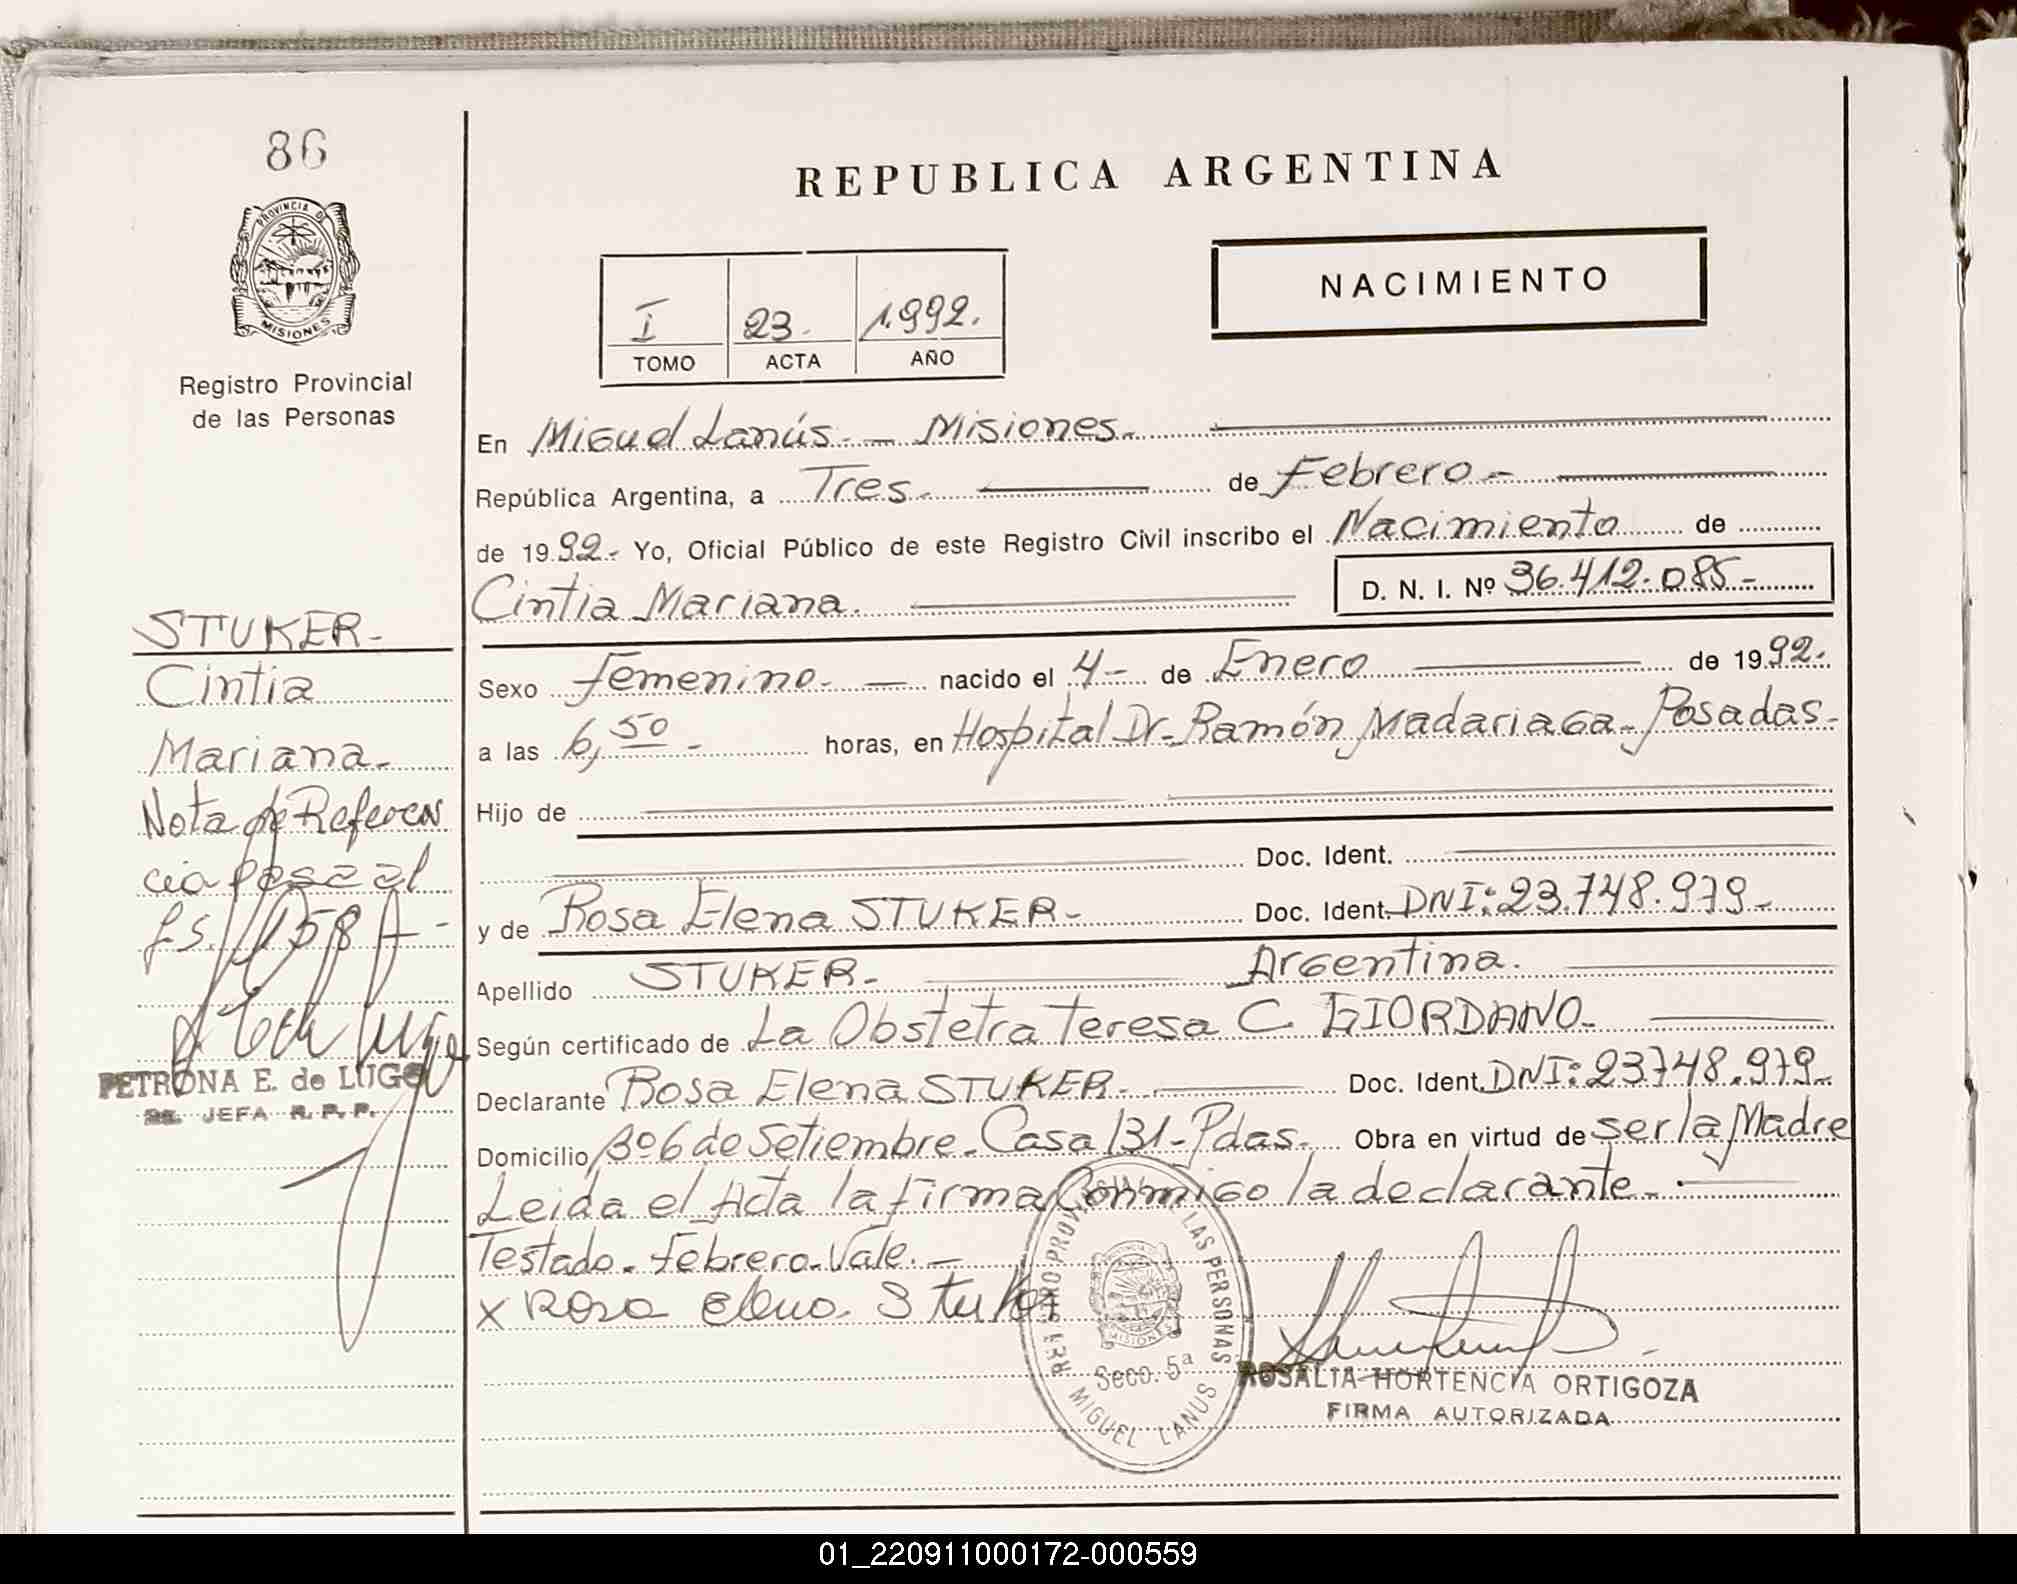 86
PROVINCIA DE
MISIONES
Registro Provincial
de las Personas
REPUBLICA ARGENTINA
I 23. 1.992.
TOMO ACTA AÑO
NACIMIENTO
En Miguel Lanús. - Misiones.
República Argentina, a Tres. de Febrero.-
de 1992.- Yo, Oficial Público de este Registro Civil inscribo el Nacimiento de
Cintia Mariana. D. N. I. Nº 36.412.085-
Sexo femenino. - nacido el 4- de Enero de 1992.
a las 6,50 - horas, en Hospital Dr. Ramón Madariaga- Posadas-
Hijo de
Doc. Ident.
y de Rosa Elena STUKER- Doc. Ident. DNI: 23.748.979-
Apellido STUKER- Argentina.
Según certificado de La Obstetra Teresa C. GIORDANO-
Declarante Rosa Elena STUKER- Doc. Ident. DNI: 23748.979-
Domicilio Bº 6 de Setiembre- Casa 131- Pdas. Obra en virtud de ser la Madre
Leida el Acta la firma Conmigo la declarante.-
Testado. Febrero. Vale.-
x Rosa Elena Stuker
STUKER-
Cintia
Mariana-
Nota de Referen
cia pasa al
fs. 158
PETRONA E. de LUGO
JEFA R. P. P.
REGISTRO PROVINCIAL DE LAS PERSONAS
MISIONES
Secc. 5ª
MIGUEL LANUS
ROSALIA HORTENCIA ORTIGOZA
FIRMA AUTORIZADA
01_220911000172-000559